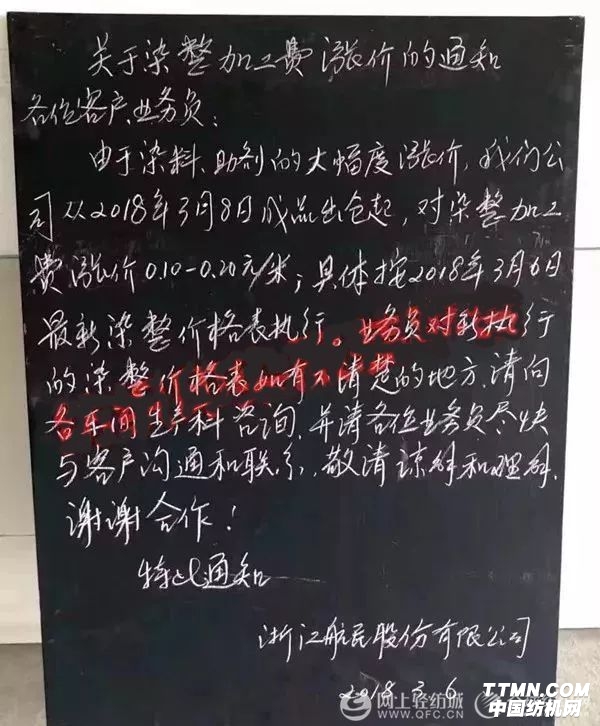 关于染整加工费涨价的通知
各位客户、业务员:
由于染料、助剂的大幅度涨价,我们公
司从2018年3月8日成品出仓起,对染整加工
费涨价0.10-0.20元/米;具体按2018年3月6日
最新染整价格表执行。业务员对新执行
的染整价格表如有不清楚的地方,请向
各车间生产科咨询,并请各位业务员尽快
与客户沟通和联系,敬请谅解和理解,
谢谢合作!
特此通知
浙江航民股份有限公司
2018.3.6
网上轻纺城
WWW.QFC.CN
TTMN.COM
中国纺机网